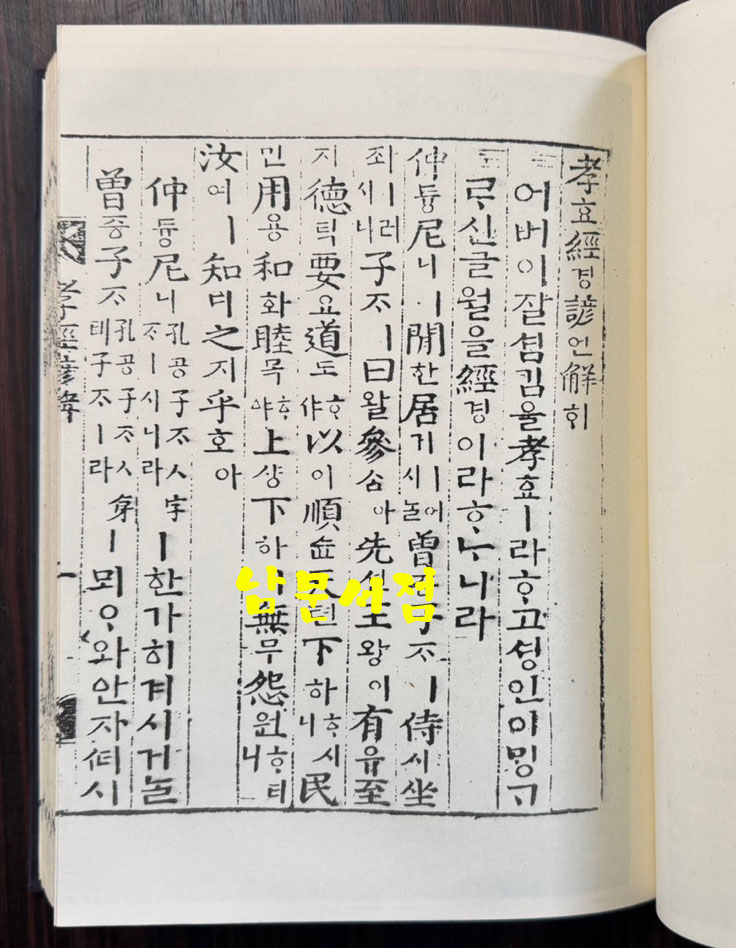 孝효經경諺언解ᄒᆡ
어버이잘셤김을孝효ㅣ라ᄒᆞ고셩인이ᄆᆡᆼᄀ
ᄅᆞ신글월을經경이라ᄒᆞᄂᆞ니라
仲듕尼니ㅣ閒한居거ㅣ어시ᄂᆞᆯ曾증子ᄌᆞㅣ侍시坐
좌ㅣ러시니子ᄌᆞㅣ曰왈參ᄉᆞᆷ아先션王왕이有유至
지德덕要요道도ᄒᆞ샤以이順슌天텬下하ᄒᆞ시니民
민用용和화睦목ᄒᆞ야上샹下하ㅣ無무怨원ᄒᆞ니
汝여ㅣ知디之지乎호아
仲듕尼니孔공子ᄌᆞㅅ字ᄌᆞㅣ시니라ㅣ한가히겨시거ᄂᆞᆯ
曾증子ᄌᆞ孔공子ᄌᆞㅅ뎨子ᄌᆞㅣ라ㅣ뫼ᄋᆞ와안자겨시
孝經諺解 一
남문서점